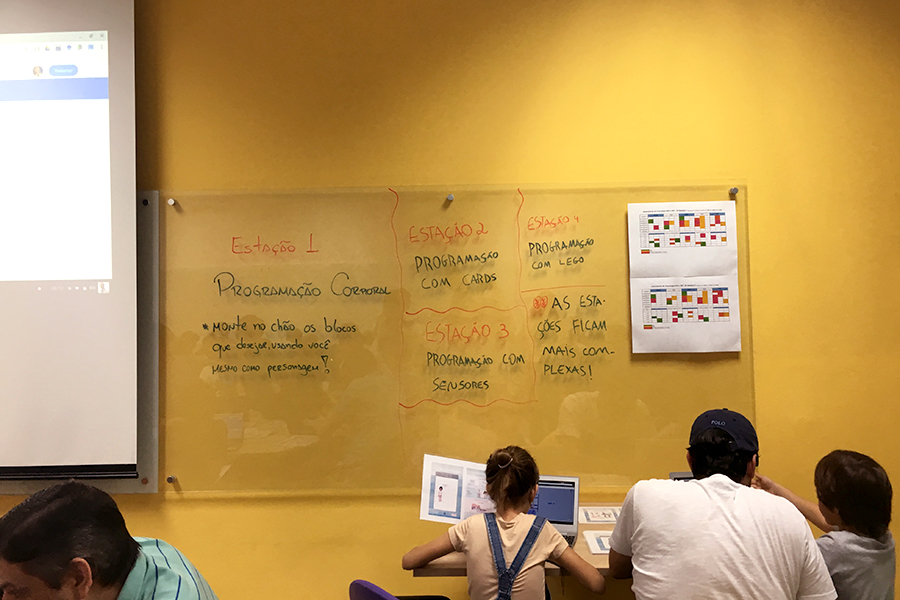 Estação 1
Programação Corporal
* Monte no chão os blocos
que desejar, usando você
mesmo como personagem!
ESTAÇÃO 2
PROGRAMAÇÃO
COM CARDS
ESTAÇÃO 3
PROGRAMAÇÃO COM
SENSORES
ESTAÇÃO 4
PROGRAMAÇÃO
COM LEGO
AS ESTA-
ÇÕES FICAM
MAIS COM-
PLEXAS!
POLO